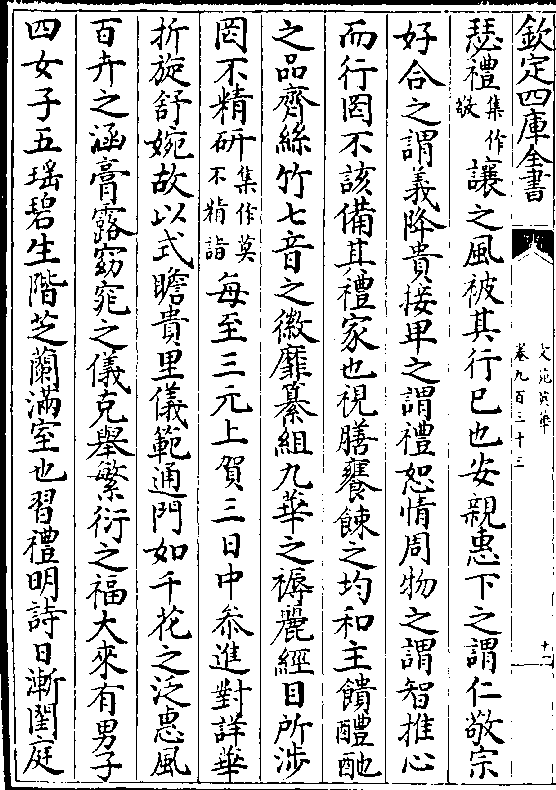 欽定四庫全書
文苑英華
卷九百三十三
十一
瑟禮集作敬讓之風被其行已也安親惠下之謂仁敬宗
好合之謂義降貴接卑之謂禮恕情周物之謂智推心
而行罔不該備其禮家也視膳饔餗之均和主饋醴酏
之品齊絲竹七音之徽靡纂組九華之褥麗經目所涉
罔不精研集作莫不精詣每至三元上賀三日中叅進對詳華
折旋舒婉故以式瞻貴里儀範通門如千花之泛惠風
百卉之涵膏露窈窕之儀克舉繁衍之福大來有男子
四女子五瑶碧生階芝蘭滿室也習禮明詩日漸閨庭